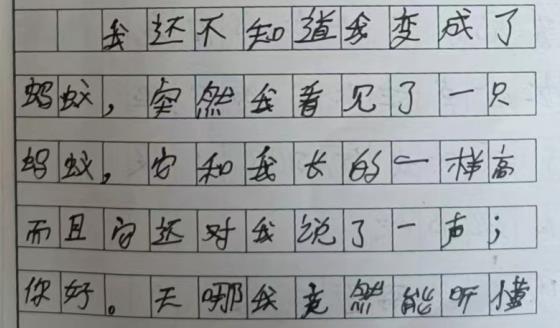 我还不知道我变成了
蚂蚁，突然我看见了一只
蚂蚁，它和我长的一样高
而且它还对我说了一声；
你好。天哪我竟然能听懂